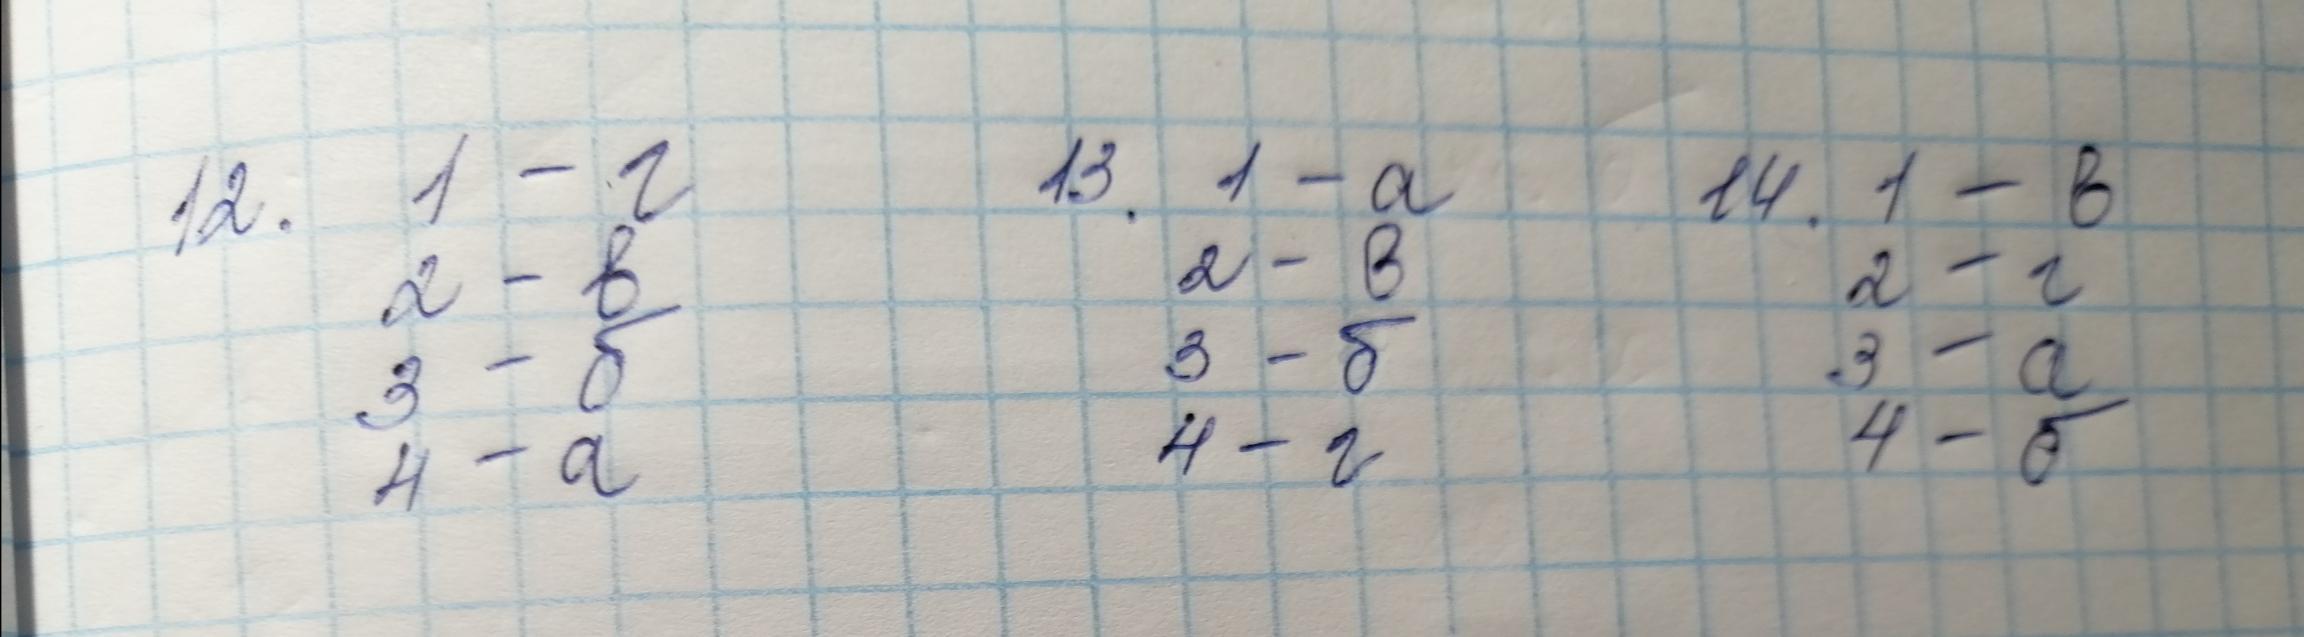 12. 1 - г
2 - в
3 - б
4 - а
13. 1 - а
2 - в
3 - б
4 - г
14. 1 - в
2 - г
3 - а
4 - б